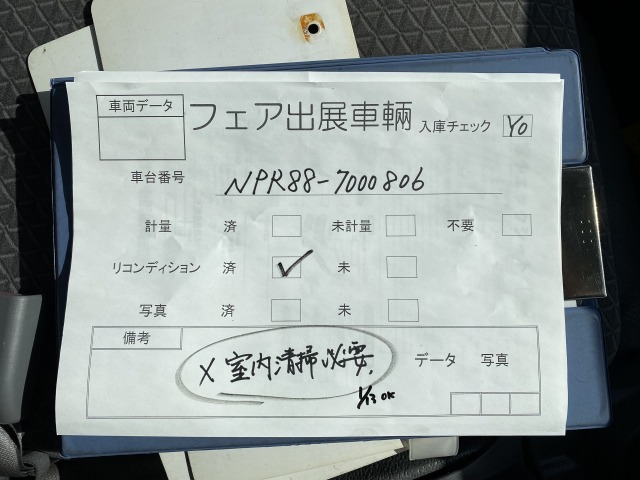 車両データ
フェア出展車輌 入庫チェック Yo
車台番号 NPR88-7000806
計量 済 未計量 不要
リコンディション 済 ✓ 未
写真 済 未
備考
× 室内清掃必要.
1/13 OK
データ 写真